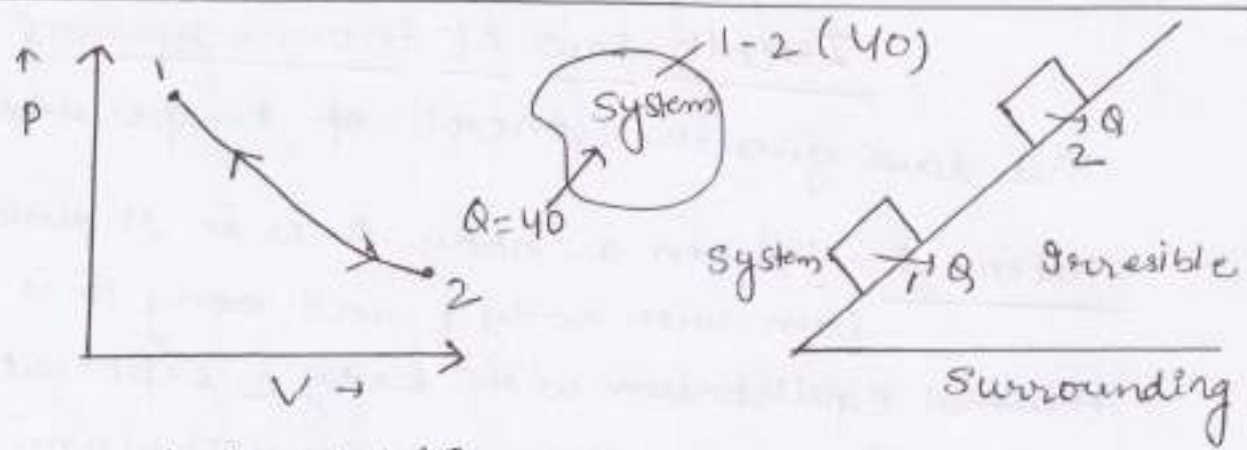 ↑
P
1
2
V →
1-2 (40)
System
Q=40
Q
2
System
1
Q
Irresible
Surrounding